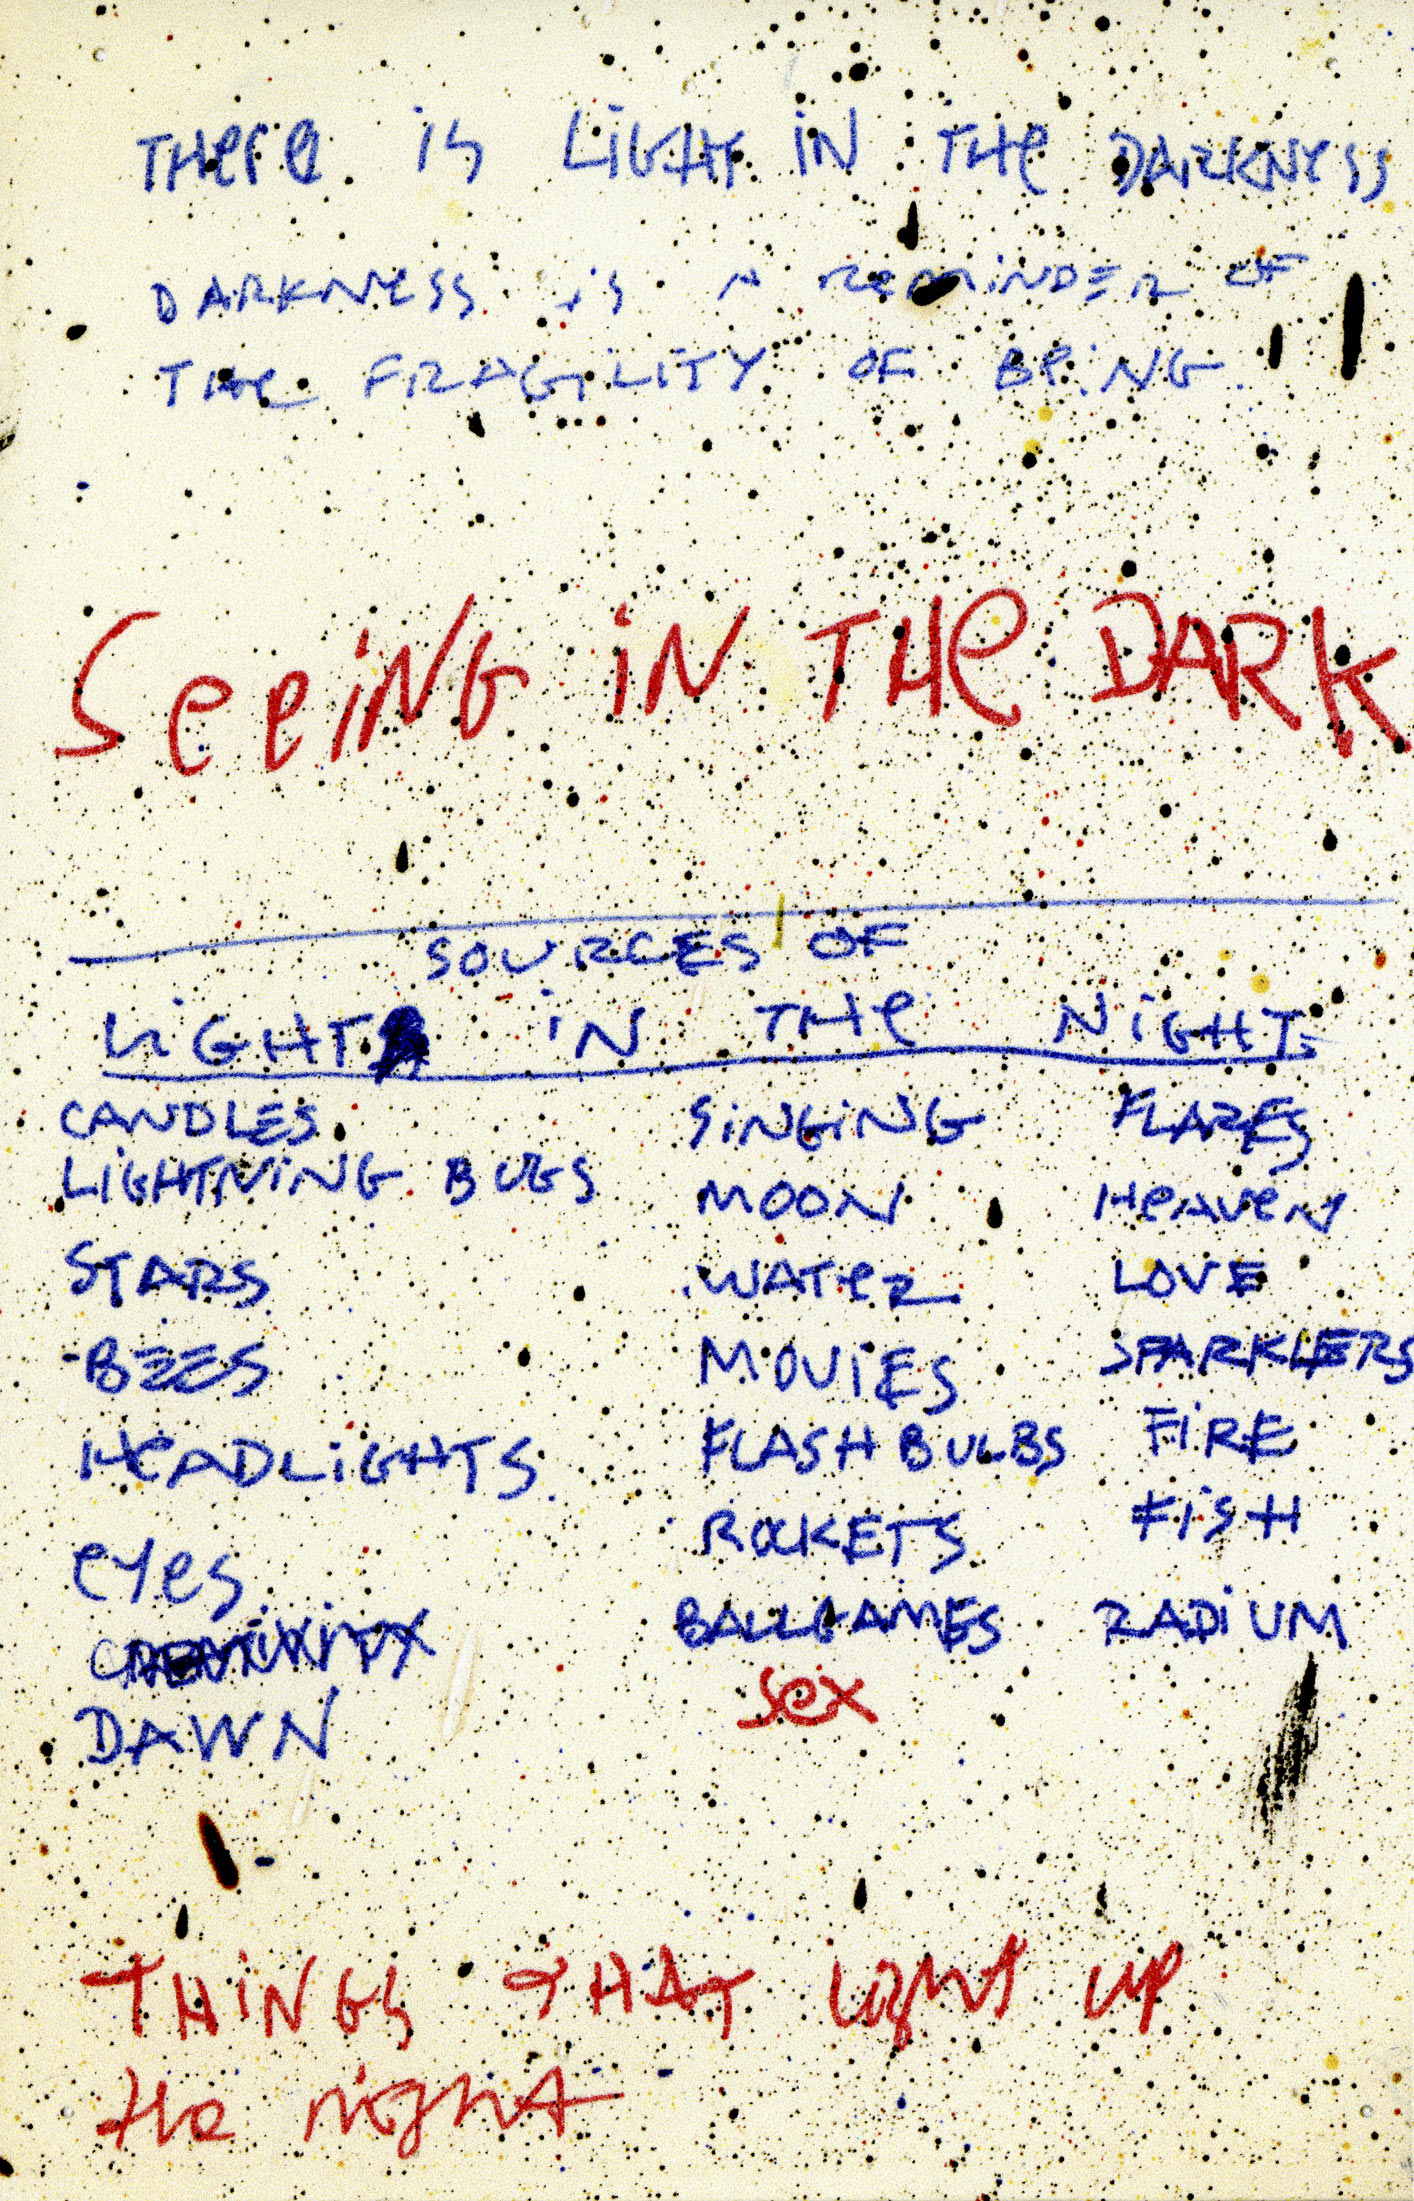 THERE IS LIGHT IN THE DARKNESS
DARKNESS IS A REMINDER OF
THE FRAGILITY OF BEING.
SEEING IN THE DARK
SOURCES OF
LIGHT IN THE NIGHT
CANDLES
LIGHTNING BUGS
STARS
BEES
HEADLIGHTS
EYES
DAWN
SINGING
MOON
WATER
MOVIES
FLASH BULBS
ROCKETS
BALLGAMES
SEX
FLARES
HEAVEN
LOVE
SPARKLERS
FIRE
FISH
RADIUM
THINGS THAT LIGHT UP
the night